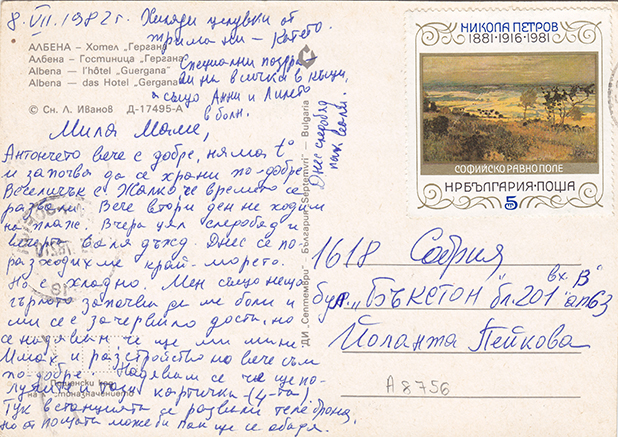 8. VII. 1982 г. Хиляди целувки от
трима ни – Катето
Специални поздра
ви на всички в къщи,
също Ани и
в болн.
Днес следобяд
пак валя.
АЛБЕНА – Хотел „Гергана“
Албена – Гостиница „Гергана“
Albena — l'hôtel „Guergana“
Albena — das Hotel „Gergana“
© Сн. Л. Иванов Д-17495-А
Мила Маме,
Антончето вече е добре, няма t°
и започва да се храни по-добре.
Веселичък е. Жалко че времето се
развали. Вече втори ден не ходим
на плаж. Вчера цял следобяд и
вечерта валя дъжд. Днес се по-
разходихме край морето.
Но е хладно. Мен също нещо
гърлото започва да ме боли и
ми се е зачервило доста, но
се надявам че ще ми мине
Имах и разстройство но вече съм
по-добре. Надявам се че ще по-
лучите и тази картичка (4-та).
Тук в станцията се развали телефона,
но от пощата може би пак ще се обадя.
ДИ „Септември“ – България „Septemvri“ – Bulgaria
НИКОЛА ПЕТРОВ
1881·1916·1981
СОФИЙСКО РАВНО ПОЛЕ
НР БЪЛГАРИЯ·ПОЩА
5
1618 София
бул. „Бъкстон“ бл. 201 вх. „В“ ап 63
Йоланта Пейкова
А 8756